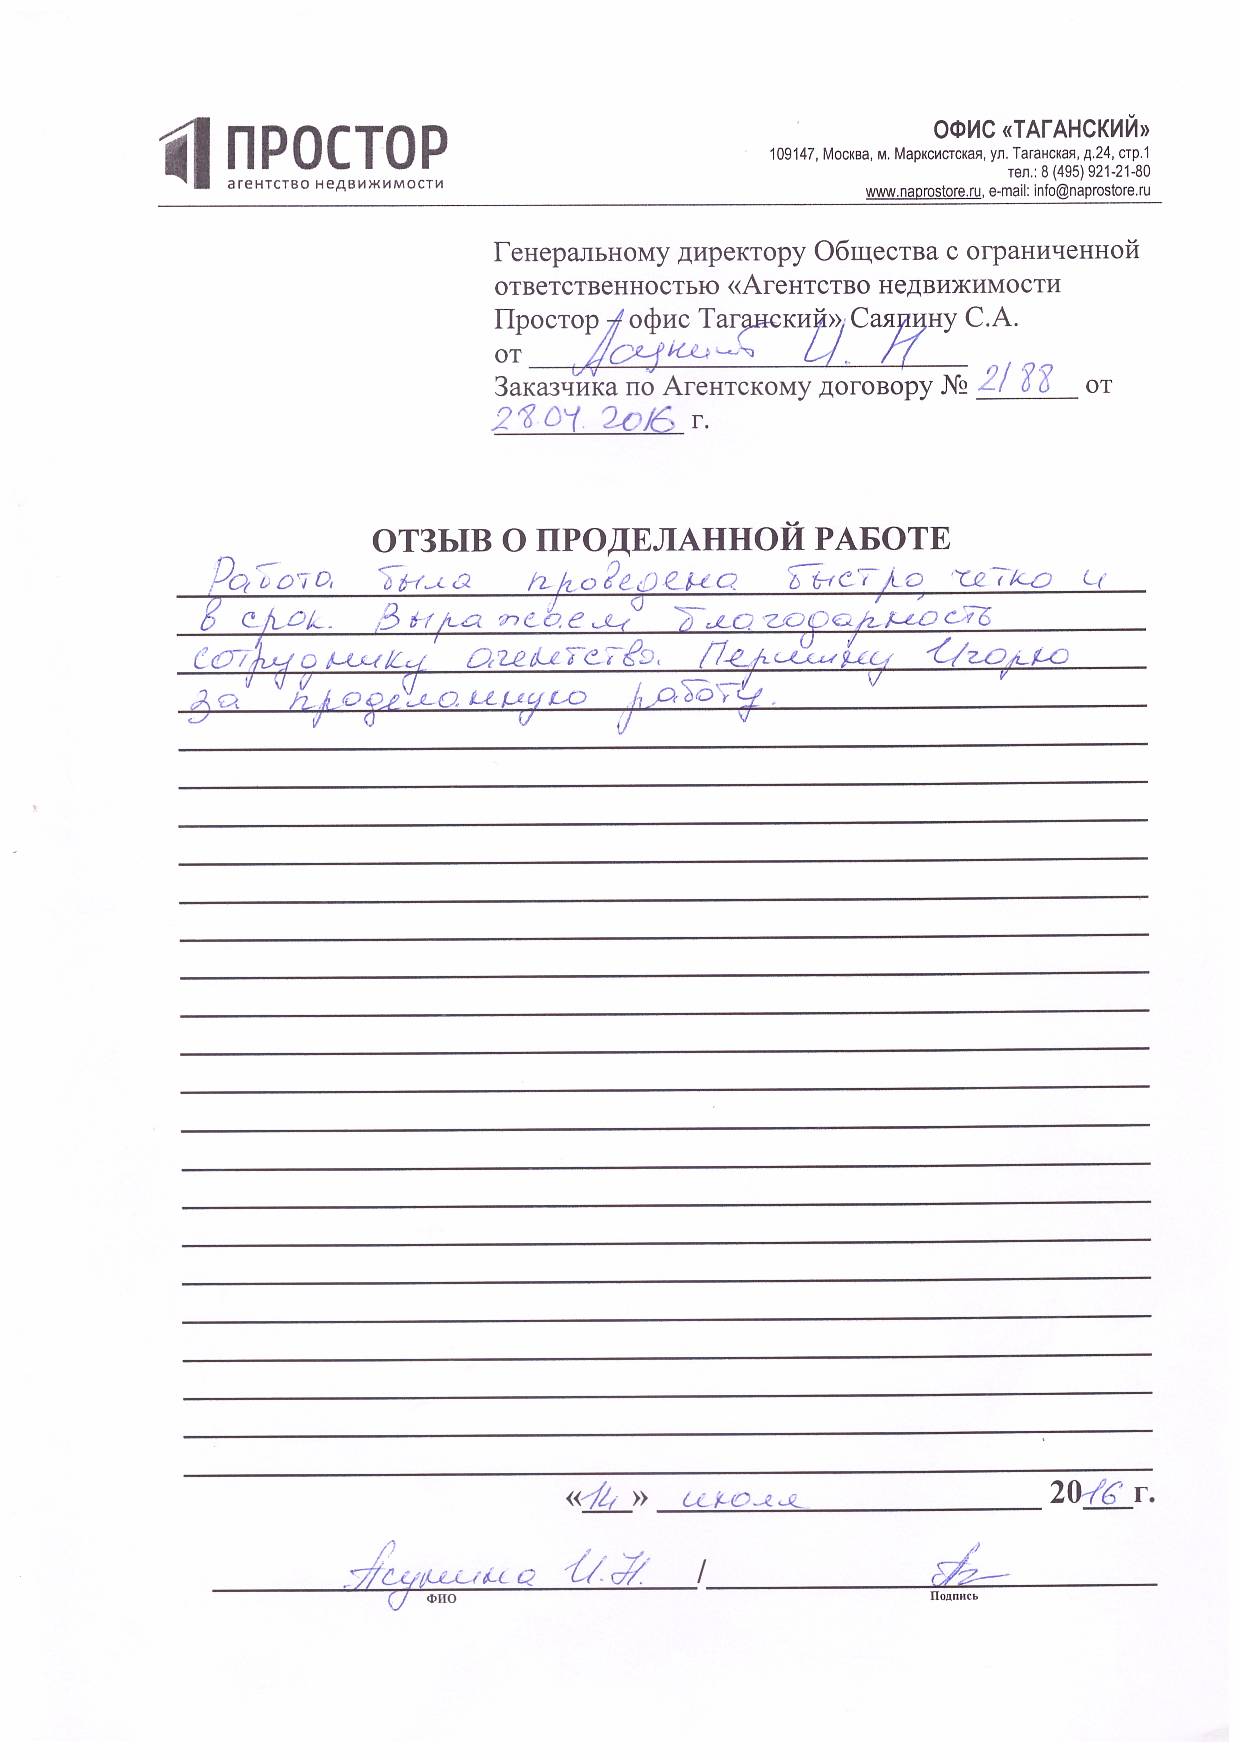 ПРОСТОР
агентство недвижимости
ОФИС «ТАГАНСКИЙ»
109147, Москва, м. Марксистская, ул. Таганская, д.24, стр.1
тел.: 8 (495) 921-21-80
www.naprostore.ru, e-mail: info@naprostore.ru
Генеральному директору Общества с ограниченной
ответственностью «Агентство недвижимости
Простор – офис Таганский» Саяпину С.А.
от И. Н
Заказчика по Агентскому договору № 2188 от
28.04. 2016 г.
ОТЗЫВ О ПРОДЕЛАННОЙ РАБОТЕ
Работа была проведена быстро, четко и
в срок. Выражаем благодарность
сотруднику агентства Першину Игорю
за проделанную работу.
«14» июля 2016 г.
И.Н. /
ФИО
Подпись